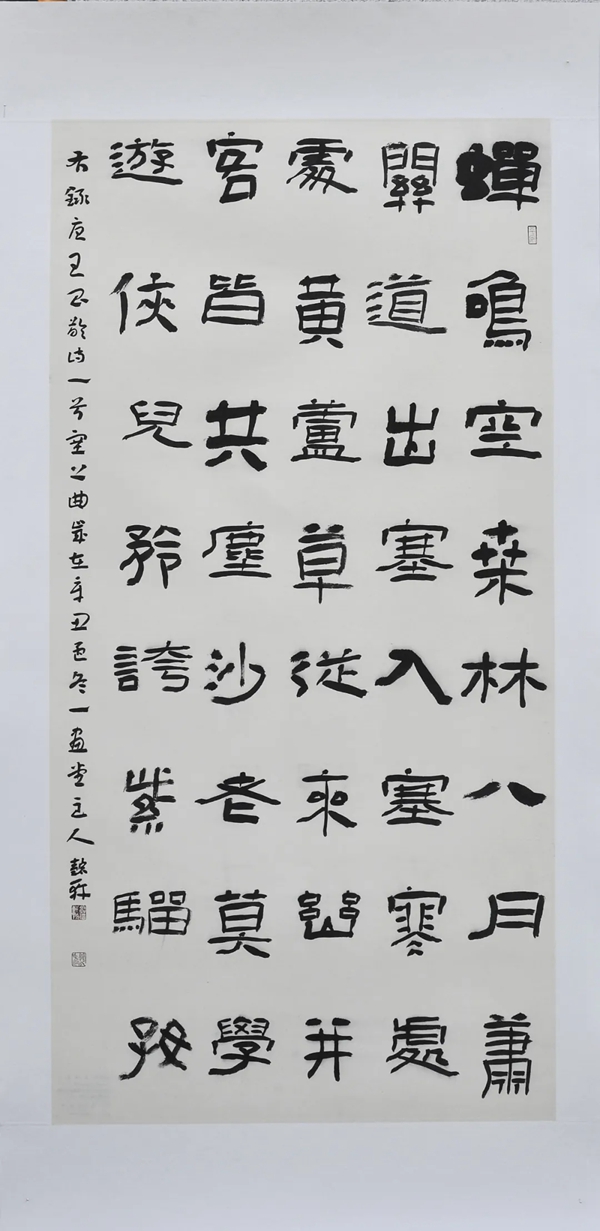 蟬鳴空桑林八月蕭
關道出塞入塞寒處
處黃蘆草從來幽并
客皆共塵沙老莫學
遊俠兒矜誇紫騮好
右錄唐王昌齡詩一首塞上曲歲在辛丑孟冬一畫堂主人